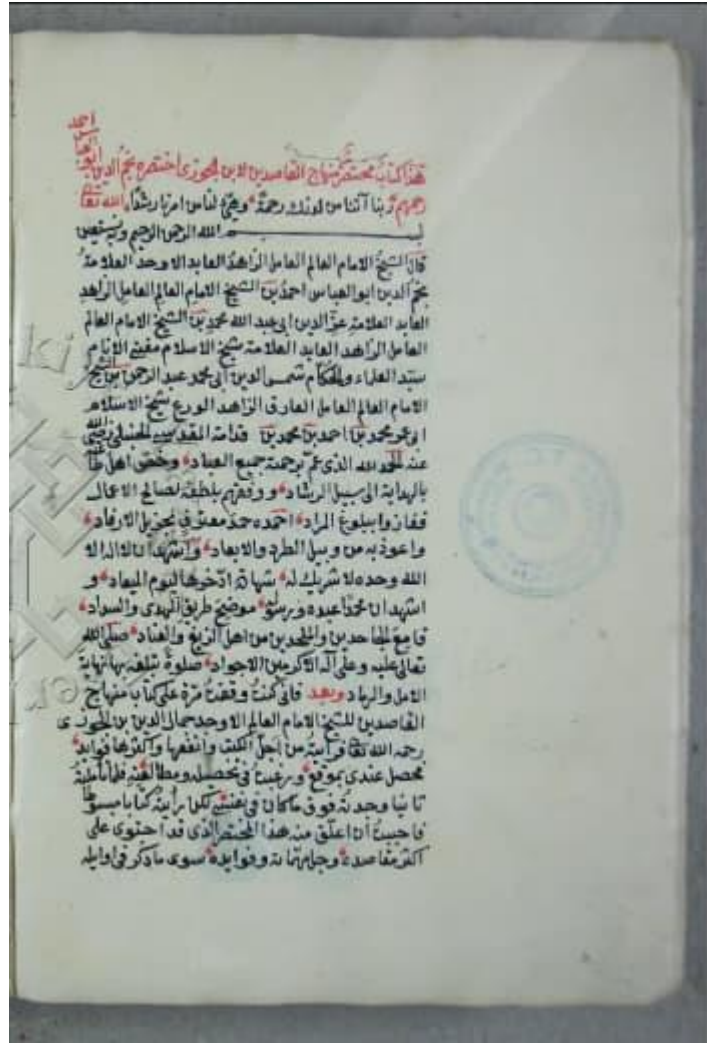 هذا كتاب مختصر منهاج القاصدين لابن الجوزي اختصره نجم الدين ابو العباس احمد
رحمهم الله تعالى ربنا آتنا من لدنك رحمة وهيئ لنا من امرنا رشدا
بسم الله الرحمن الرحيم وبه نستعين
قال الشيخ الامام العالم العامل الزاهد العابد الاوحد العلامة
نجم الدين ابو العباس احمد بن الشيخ الامام العالم العامل الزاهد
العابد العلامة عز الدين ابى عبد الله محمد بن الشيخ الامام العالم
العامل الزاهد العابد العلامة شيخ الاسلام مفتي الانام
سيد العلماء والحكام شمس الدين ابى محمد عبد الرحمن بن الشيخ
الامام العالم العامل العارف الزاهد الورع شيخ الاسلام
ابى عمر محمد بن احمد بن محمد بن قدامة المقدسي الحنبلي رضى الله
عنه الحمد لله الذى عم برحمته جميع العباد وخص اهل طاعته
بالهداية الى سبيل الرشاد ووفقهم بلطفه لصالح الاعمال
ففازوا ببلوغ المراد احمده حمد معترف بجزيل الارفاد
واعوذ به من وبيل الطرد والابعاد واشهد ان لا اله الا
الله وحده لا شريك له شهادة ادخرها ليوم الميعاد و
اشهد ان محمدا عبده ورسوله موضح طريق الهدى والسداد
قامع الجاحدين والملحدين من اهل الزيغ والعناد صلى الله
تعالى عليه وعلى آله الاكرمين الاجواد صلوة تبلغه بها نهاية
الامل والمراد وبعد فانى كنت وقفت مرة على كتاب منهاج
القاصدين للشيخ الامام العالم الاوحد جمال الدين بن الجوزى
رحمه الله تعالى فرأيته من اجل الكتب وانفعها واكثرها فوائد
فحصل عندى بموقع ورغبت فى تحصيله ومطالعته فلما تأملته
ثانيا وجدته فوق ما كان فى نفسى لكن رأيته كتابا مبسوطا
فاحببت ان اعلق منه هذا المختصر الذى قد احتوى على
اكثر مقاصده وجل مهماته وفوايده سوى ما ذكر فى اوايله